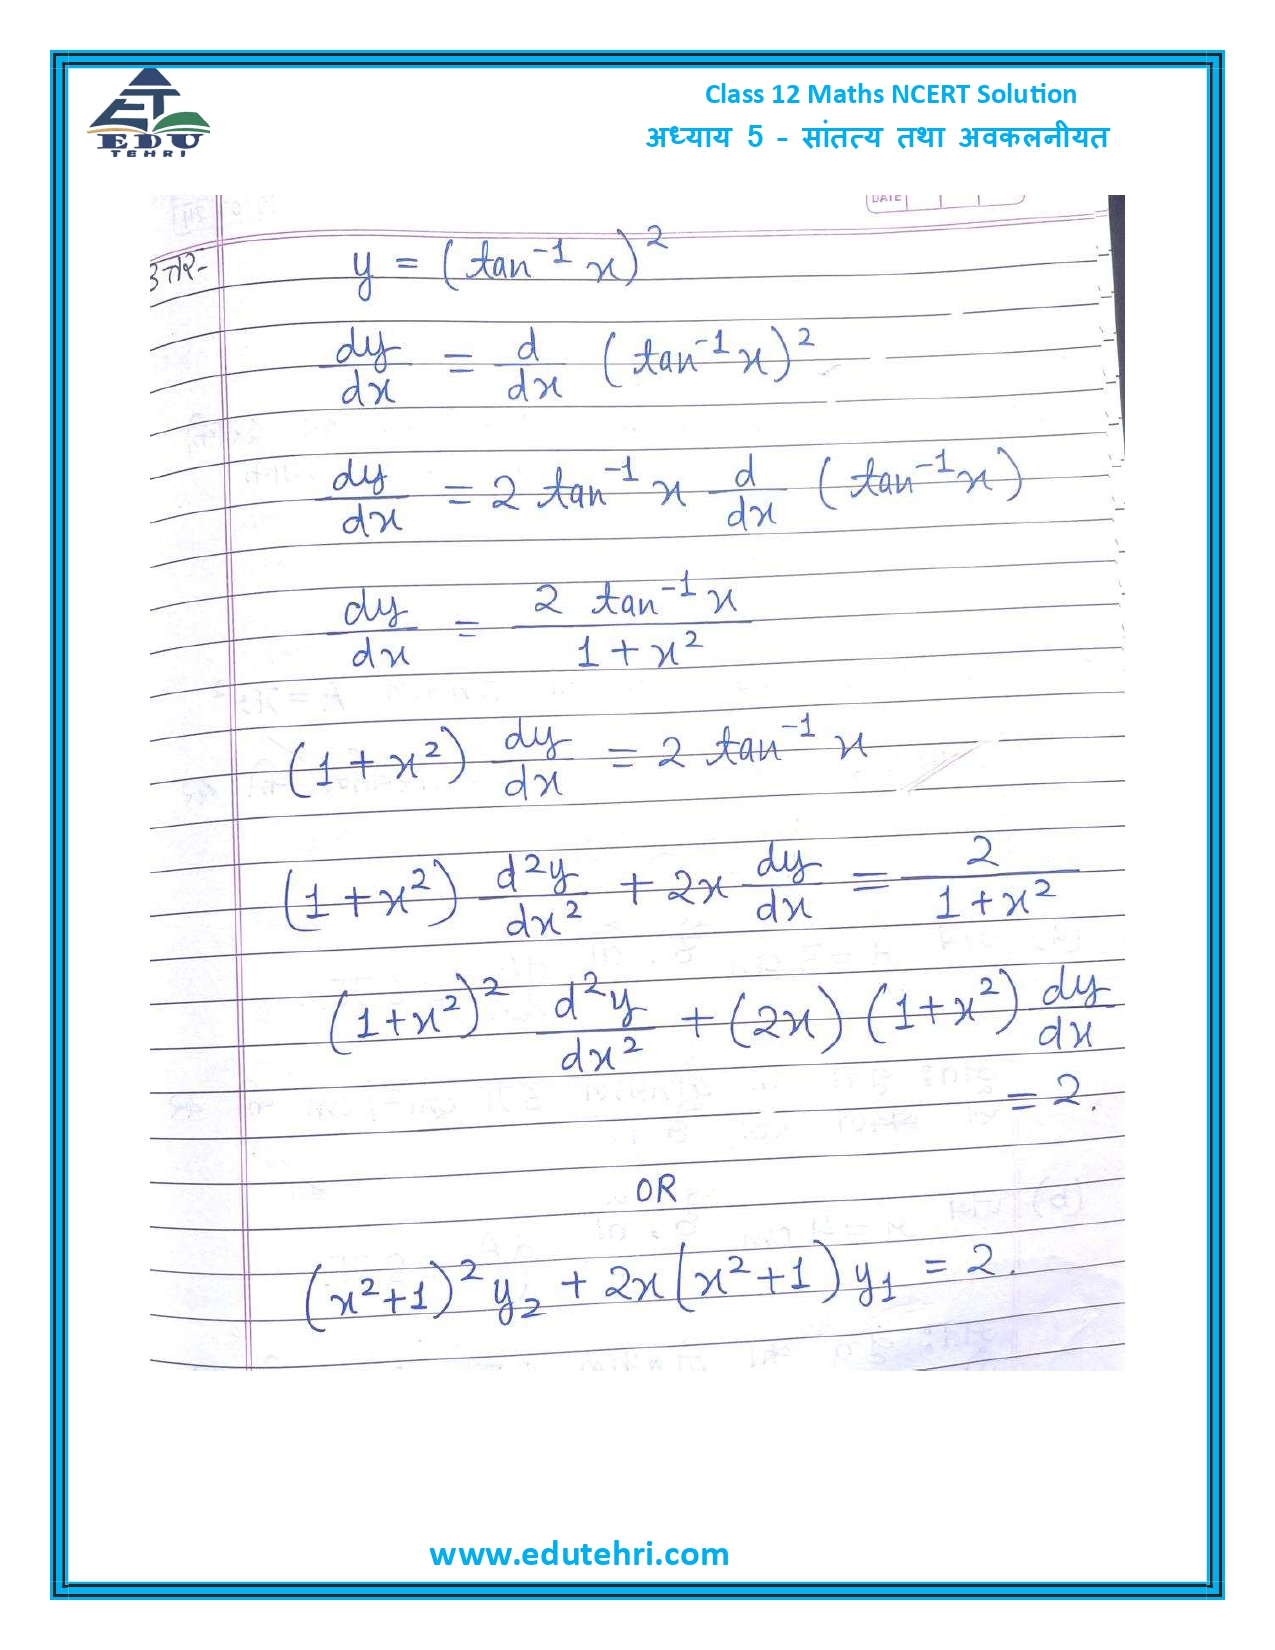 EDU
TEHRI
Class 12 Maths NCERT Solution
अध्याय 5 - सांतत्य तथा अवकलनीयत
DATE
उत्तर-
y = (tan⁻¹ x)²
dy/dx = d/dx (tan⁻¹ x)²
dy/dx = 2 tan⁻¹ x d/dx (tan⁻¹ x)
dy/dx = 2 tan⁻¹ x / 1 + x²
(1 + x²) dy/dx = 2 tan⁻¹ x
(1 + x²) d²y/dx² + 2x dy/dx = 2 / 1 + x²
(1+x²)² d²y/dx² + (2x) (1+x²) dy/dx
= 2.
OR
(x²+1)² y₂ + 2x (x²+1) y₁ = 2.
www.edutehri.com